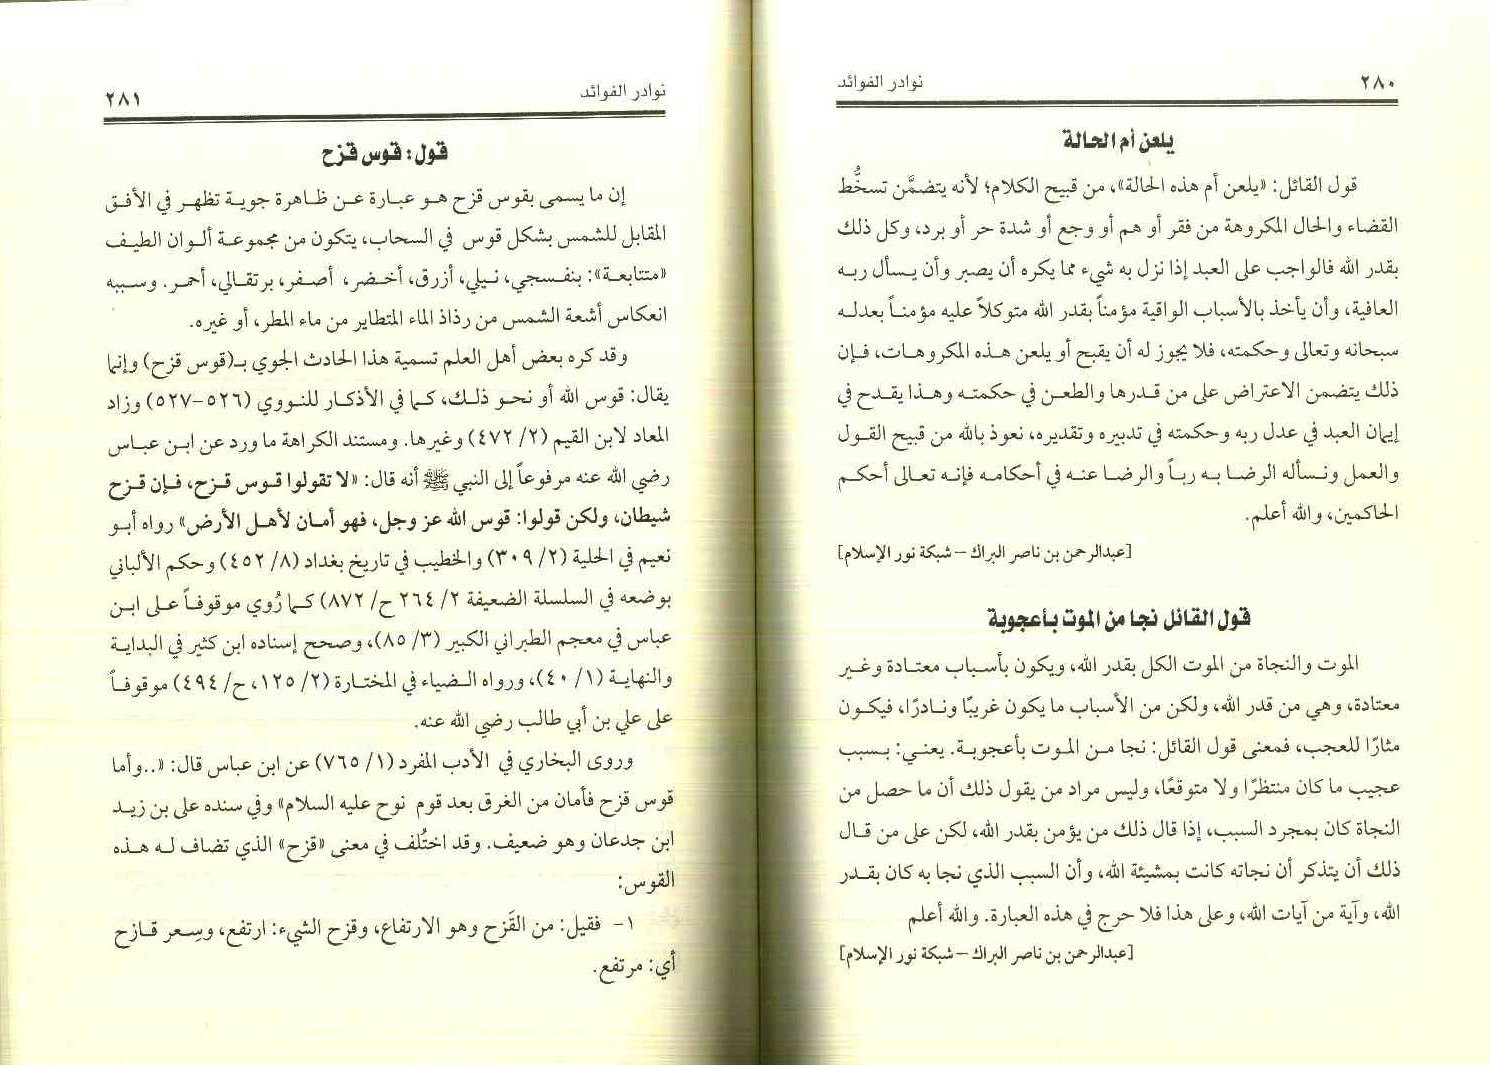 ٢٨٠
نوادر الفوائد
يلعن أم الحالة
قول القائل: «يلعن أم هذه الحالة»، من قبيح الكلام؛ لأنه يتضمَّن تسخُّط
القضاء والحال المكروهة من فقر أو هم أو وجع أو شدة حر أو برد، وكل ذلك
بقدر الله فالواجب على العبد إذا نزل به شيء مما يكره أن يصبر وأن يسأل ربه
العافية، وأن يأخذ بالأسباب الواقية مؤمناً بقدر الله متوكلاً عليه مؤمناً بعدله
سبحانه وتعالى وحكمته، فلا يجوز له أن يقبح أو يلعن هذه المكروهات، فإن
ذلك يتضمن الاعتراض على من قدرها والطعن في حكمته وهذا يقدح في
إيمان العبد في عدل ربه وحكمته في تدبيره وتقديره، نعوذ بالله من قبيح القول
والعمل ونسأله الرضا به رباً والرضا عنه في أحكامه فإنه تعالى أحكم
الحاكمين، والله أعلم.
[عبدالرحمن بن ناصر البراك – شبكة نور الإسلام]
قول القائل نجا من الموت بأعجوبة
الموت والنجاة من الموت الكل بقدر الله، ويكون بأسباب معتادة وغير
معتادة، وهي من قدر الله، ولكن من الأسباب ما يكون غريبًا ونادرًا، فيكون
مثارًا للعجب، فمعنى قول القائل: نجا من الموت بأعجوبة. يعني: بسبب
عجيب ما كان منتظرًا ولا متوقعًا، وليس مراد من يقول ذلك أن ما حصل من
النجاة كان بمجرد السبب، إذا قال ذلك من يؤمن بقدر الله، لكن على من قال
ذلك أن يتذكر أن نجاته كانت بمشيئة الله، وأن السبب الذي نجا به كان بقدر
الله، وآية من آيات الله، وعلى هذا فلا حرج في هذه العبارة. والله أعلم
[عبدالرحمن بن ناصر البراك – شبكة نور الإسلام]
نوادر الفوائد
٢٨١
قول: قوس قزح
إن ما يسمى بقوس قزح هو عبارة عن ظاهرة جوية تظهر في الأفق
المقابل للشمس بشكل قوس في السحاب، يتكون من مجموعة ألوان الطيف
«متتابعة»: بنفسجي، نيلي، أزرق، أخضر، أصفر، برتقالي، أحمر. وسببه
انعكاس أشعة الشمس من رذاذ الماء المتطاير من ماء المطر، أو غيره.
وقد كره بعض أهل العلم تسمية هذا الحادث الجوي بـ(قوس قزح) وإنما
يقال: قوس الله أو نحو ذلك، كما في الأذكار للنووي (٥٢٦-٥٢٧) وزاد
المعاد لابن القيم (٢/ ٤٧٢) وغيرها. ومستند الكراهة ما ورد عن ابن عباس
رضي الله عنه مرفوعاً إلى النبي ﷺ أنه قال: «لا تقولوا قوس قزح، فإن قزح
شيطان، ولكن قولوا: قوس الله عز وجل، فهو أمان لأهل الأرض» رواه أبو
نعيم في الحلية (٢/ ٣٠٩) والخطيب في تاريخ بغداد (٨/ ٤٥٢) وحكم الألباني
بوضعه في السلسلة الضعيفة ٢/ ٢٦٤ ح/ ٨٧٢) كما رُوي موقوفاً على ابن
عباس في معجم الطبراني الكبير (٣/ ٨٥)، وصحح إسناده ابن كثير في البداية
والنهاية (١/ ٤٠)، ورواه الضياء في المختارة (٢/ ١٢٥، ح/ ٤٩٤) موقوفاً
على علي بن أبي طالب رضي الله عنه.
وروى البخاري في الأدب المفرد (١/ ٧٦٥) عن ابن عباس قال: «..وأما
قوس قزح فأمان من الغرق بعد قوم نوح عليه السلام» وفي سنده على بن زيد
ابن جدعان وهو ضعيف. وقد اختُلف في معنى «قزح» الذي تضاف له هذه
القوس:
١- فقيل: من القَزح وهو الارتفاع، وقزح الشيء: ارتفع، وسِعر قازح
أي: مرتفع.